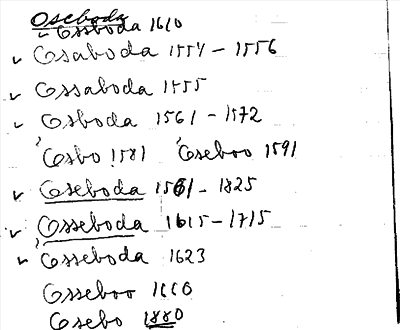 Oseboda
Ossboda 1610
Osaboda 1554 - 1556
Ossaboda 1555
Osboda 1561 - 1572
Osbo 1581 Oseboo 1591
Oseboda 1561 - 1825
Osseboda 1615 - 1715
Osseboda 1623
Osseboo 1660
Osebo 1880